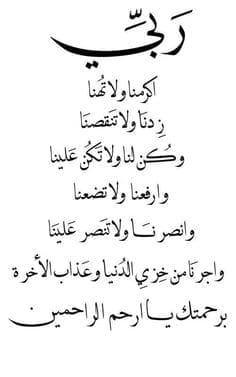 رَبيِّ
اكرمنا ولا تُهنا
زِدنَا ولا تَنقصنَا
وكُن لنا ولا تَكُن عَلينا
وارفعنا ولا تضعنا
وانصرنا ولا تَنصر عَلينَا
واجرنا من خِزي الدُنيا وعَذاب الأخرة
برحمتك يا ارحم الراحمين .